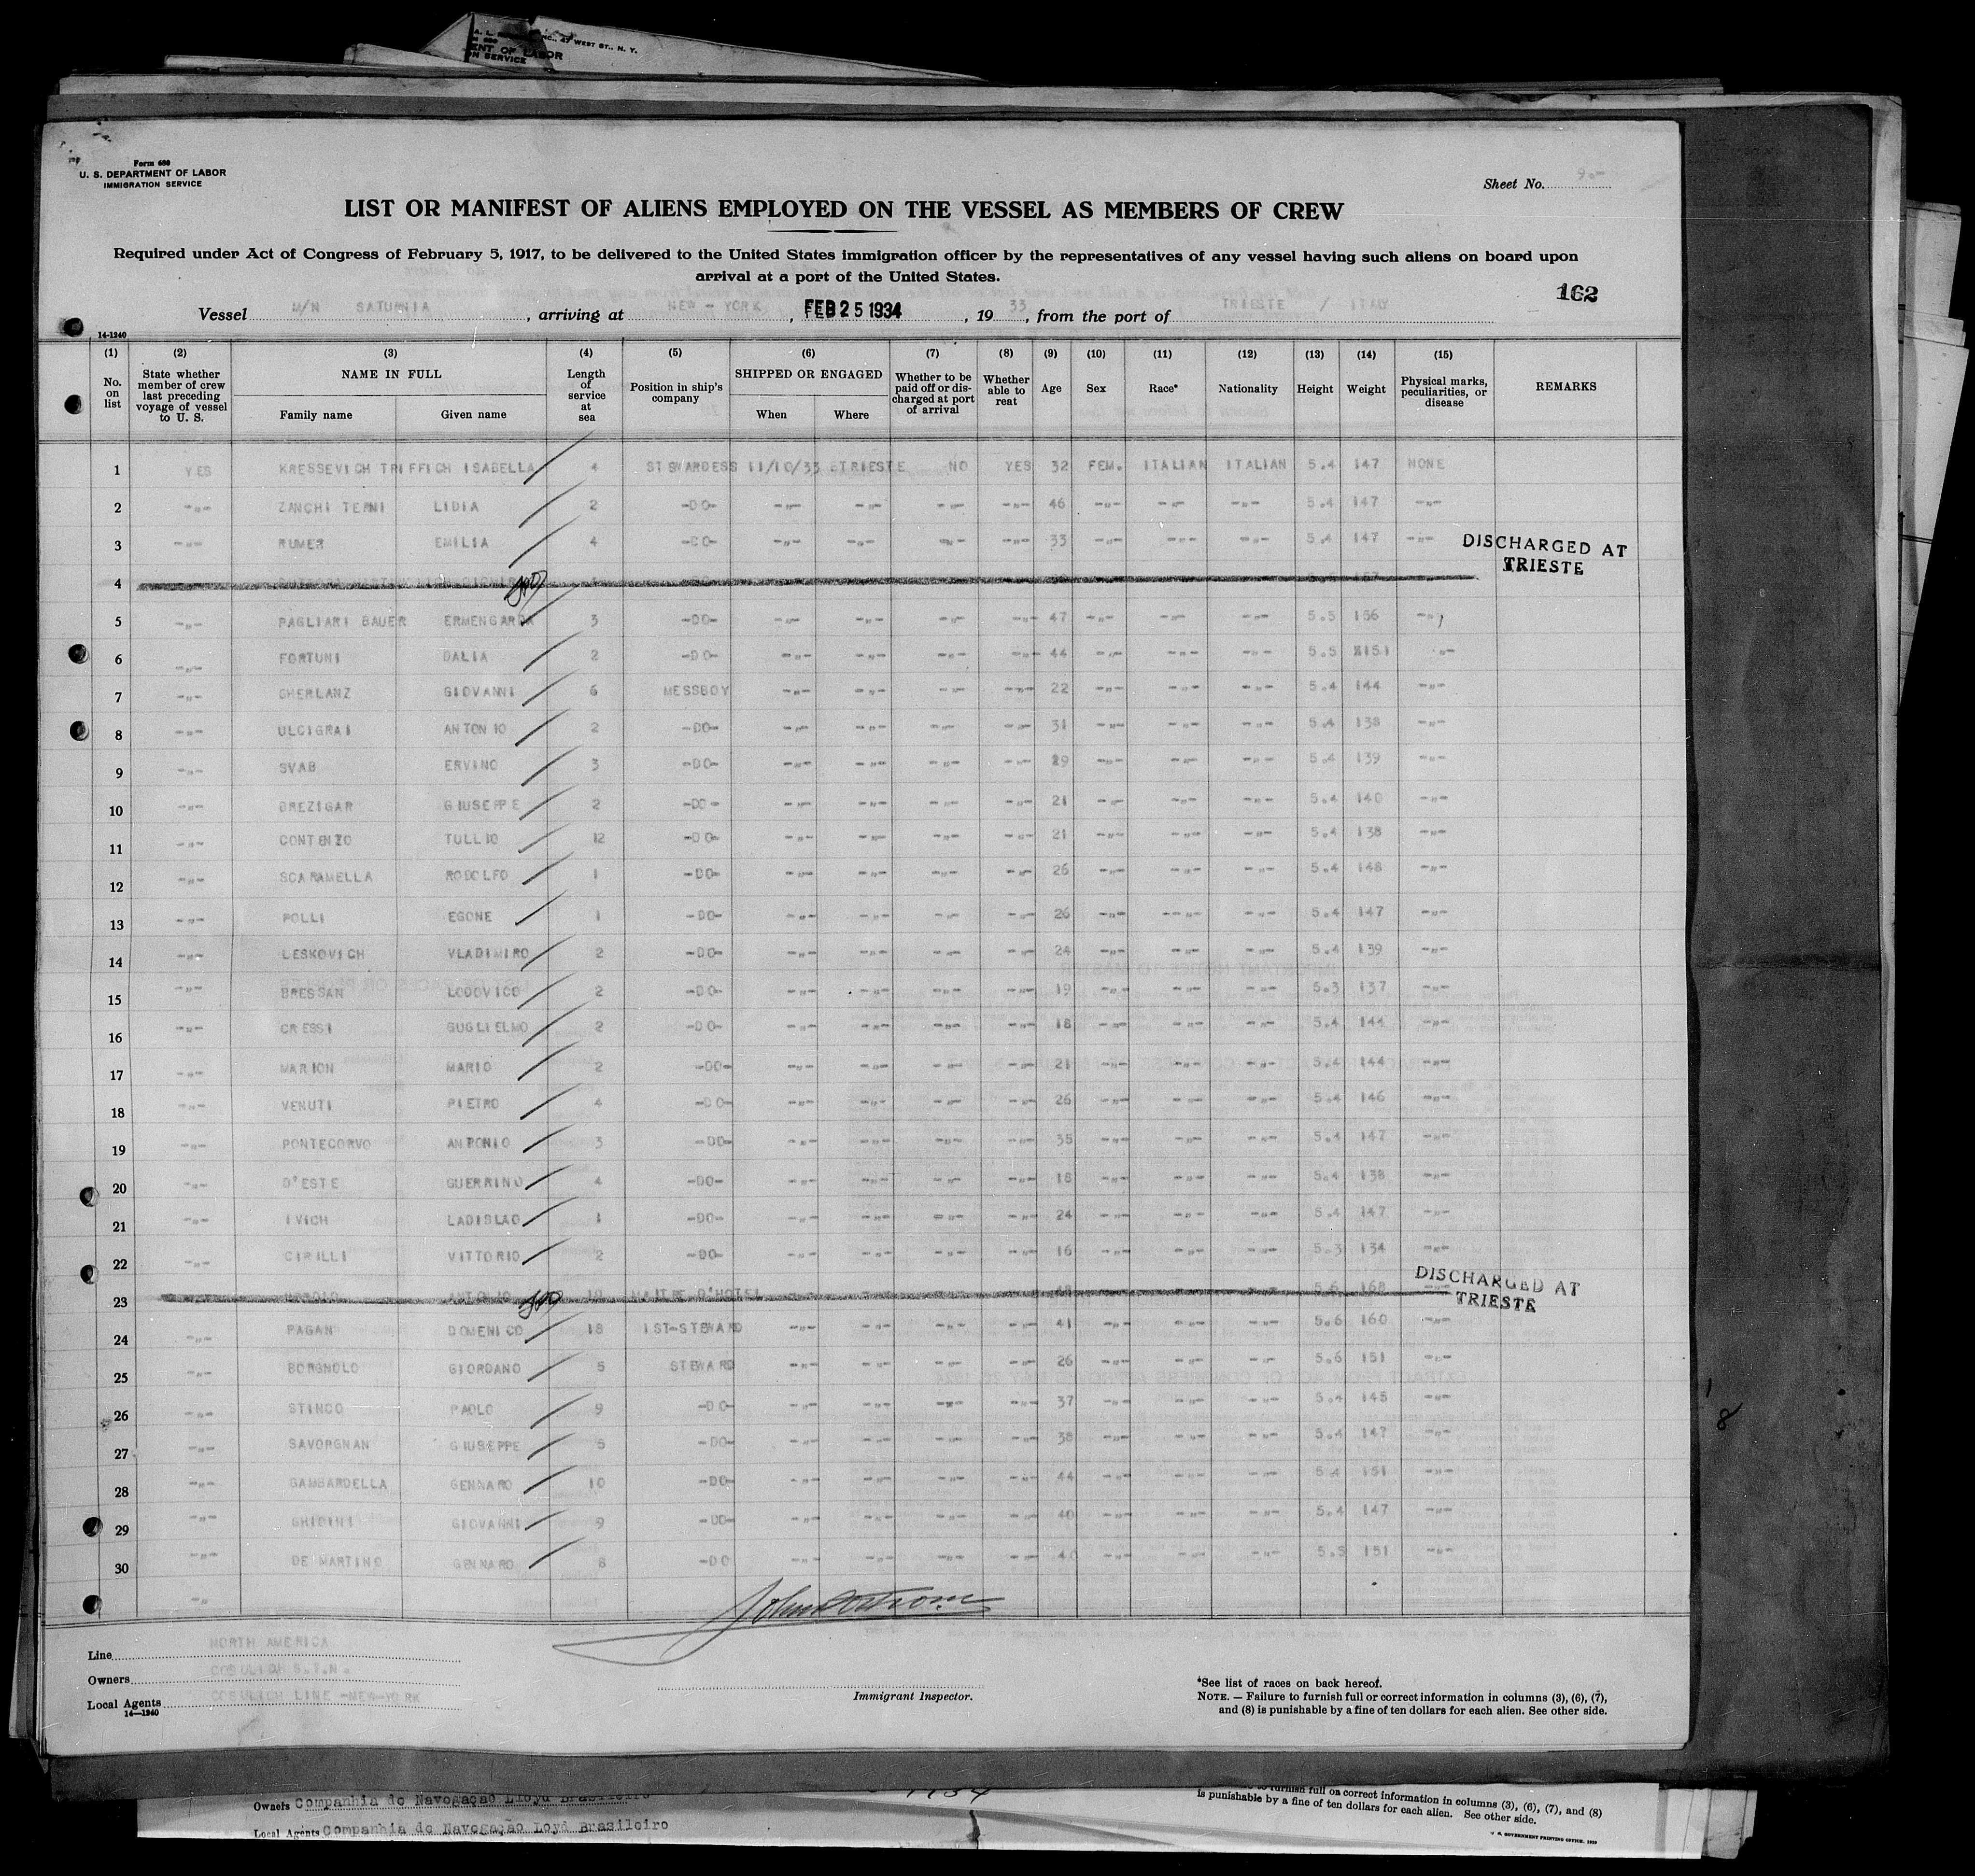 A. L. INC., 47 WEST ST., N. Y.
ENT OF LABOR
ON SERVICE
Form 680
U. S. DEPARTMENT OF LABOR
IMMIGRATION SERVICE
Sheet No. 9.-
LIST OR MANIFEST OF ALIENS EMPLOYED ON THE VESSEL AS MEMBERS OF CREW
Required under Act of Congress of February 5, 1917, to be delivered to the United States immigration officer by the representatives of any vessel having such aliens on board upon
arrival at a port of the United States.
162
Vessel M/N SATURNIA, arriving at NEW-YORK, FEB 25 1934, 1933, from the port of TRIESTE / ITALY
14-1240
(1) (2) (3) (4) (5) (6) (7) (8) (9) (10) (11) (12) (13) (14) (15)
No. on list State whether member of crew last preceding voyage of vessel to U. S. NAME IN FULL Length of service at sea Position in ship's company SHIPPED OR ENGAGED Whether to be paid off or discharged at port of arrival Whether able to reat Age Sex Race* Nationality Height Weight Physical marks, peculiarities, or disease REMARKS
Family name Given name When Where
1 YES KRESSEVICH TRIFFICH ISABELLA 4 STEWARDESS 11/10/33 TRIESTE NO YES 32 FEM. ITALIAN ITALIAN 5.4 147 NONE
2 -"- ZANCHI TERNI LIDIA 2 -DO- -"- -"- -"- -"- 46 -"- -"- -"- 5.4 147 -"-
3 -"- RUMER EMILIA 4 -DO- -"- -"- -"- -"- 33 -"- -"- -"- 5.4 147 -"-
DISCHARGED AT
TRIESTE
4
5 -"- PAGLIARI BAUER ERMENGARDA 3 -DO- -"- -"- -"- -"- 47 -"- -"- -"- 5.5 156 -"-
6 -"- FORTUNI DALIA 2 -DO- -"- -"- -"- -"- 44 -"- -"- -"- 5.5 151 -"-
7 -"- GHERLANZ GIOVANNI 6 MESSBOY -"- -"- -"- -"- 22 -"- -"- -"- 5.4 144 -"-
8 -"- ULCIGRAI ANTONIO 2 -DO- -"- -"- -"- -"- 31 -"- -"- -"- 5.4 138 -"-
9 -"- SVAB ERVINO 3 -DO- -"- -"- -"- -"- 29 -"- -"- -"- 5.4 139 -"-
10 -"- BREZIGAR GIUSEPPE 2 -DO- -"- -"- -"- -"- 21 -"- -"- -"- 5.4 140 -"-
11 -"- CONTENZO TULLIO 12 -DO- -"- -"- -"- -"- 21 -"- -"- -"- 5.4 138 -"-
12 -"- SCARAMELLA RODOLFO 1 -DO- -"- -"- -"- -"- 26 -"- -"- -"- 5.4 148 -"-
13 -"- POLLI EGONE 1 -DO- -"- -"- -"- -"- 26 -"- -"- -"- 5.4 147 -"-
14 -"- LESKOVICH VLADIMIRO 2 -DO- -"- -"- -"- -"- 24 -"- -"- -"- 5.4 139 -"-
15 -"- BRESSAN LODOVICO 2 -DO- -"- -"- -"- -"- 19 -"- -"- -"- 5.3 137 -"-
16 -"- CRESSI GUGLIELMO 2 -DO- -"- -"- -"- -"- 18 -"- -"- -"- 5.4 144 -"-
17 -"- MARION MARIO 2 -DO- -"- -"- -"- -"- 21 -"- -"- -"- 5.4 144 -"-
18 -"- VENUTI PIETRO 4 -DO- -"- -"- -"- -"- 26 -"- -"- -"- 5.4 146 -"-
19 -"- PONTECORVO ANTONIO 3 -DO- -"- -"- -"- -"- 35 -"- -"- -"- 5.4 147 -"-
20 -"- D'ESTE GUERRINO 4 -DO- -"- -"- -"- -"- 18 -"- -"- -"- 5.4 138 -"-
21 -"- IVICH LADISLAO 1 -DO- -"- -"- -"- -"- 24 -"- -"- -"- 5.4 147 -"-
22 -"- CIRILLI VITTORIO 2 -DO- -"- -"- -"- -"- 16 -"- -"- -"- 5.3 134 -"-
DISCHARGED AT
TRIESTE
23 ANTONIO MAITRE D'HOTEL 5.6 168
24 -"- PAGAN DOMENICO 18 1ST-STEWARD -"- -"- -"- -"- 41 -"- -"- -"- 5.6 160 -"-
25 -"- BORGNOLO GIORDANO 5 STEWARD -"- -"- -"- -"- 26 -"- -"- -"- 5.6 151 -"-
26 -"- STINCO PAOLO 9 -DO- -"- -"- -"- -"- 37 -"- -"- -"- 5.4 145 -"-
27 -"- SAVORGNAN GIUSEPPE 5 -DO- -"- -"- -"- -"- 38 -"- -"- -"- 5.4 147 -"-
28 -"- GAMBARDELLA GENNARO 10 -DO- -"- -"- -"- -"- 44 -"- -"- -"- 5.4 151 -"-
29 -"- GHIDINI GIOVANNI 9 -DO- -"- -"- -"- -"- 40 -"- -"- -"- 5.4 147 -"-
30 -"- DE MARTINO GENNARO 8 -DO -"- -"- -"- -"- 40 -"- -"- -"- 5.5 151 -"-
-"-
Line NORTH AMERICA
Owners COSULICH S.T.N.
Local Agents COSULICH LINE -NEW-YORK
14—1240
Immigrant Inspector.
*See list of races on back hereof.
NOTE. — Failure to furnish full or correct information in columns (3), (6), (7),
and (8) is punishable by a fine of ten dollars for each alien. See other side.
Owners Companhia do Navogação Lloyd Brasileiro
Local Agents Companhia do Navogação Loyd Brasileiro
to furnish full or correct information in columns (3), (6), (7), and (8)
is punishable by a fine of ten dollars for each alien. See other side.
U. S. GOVERNMENT PRINTING OFFICE